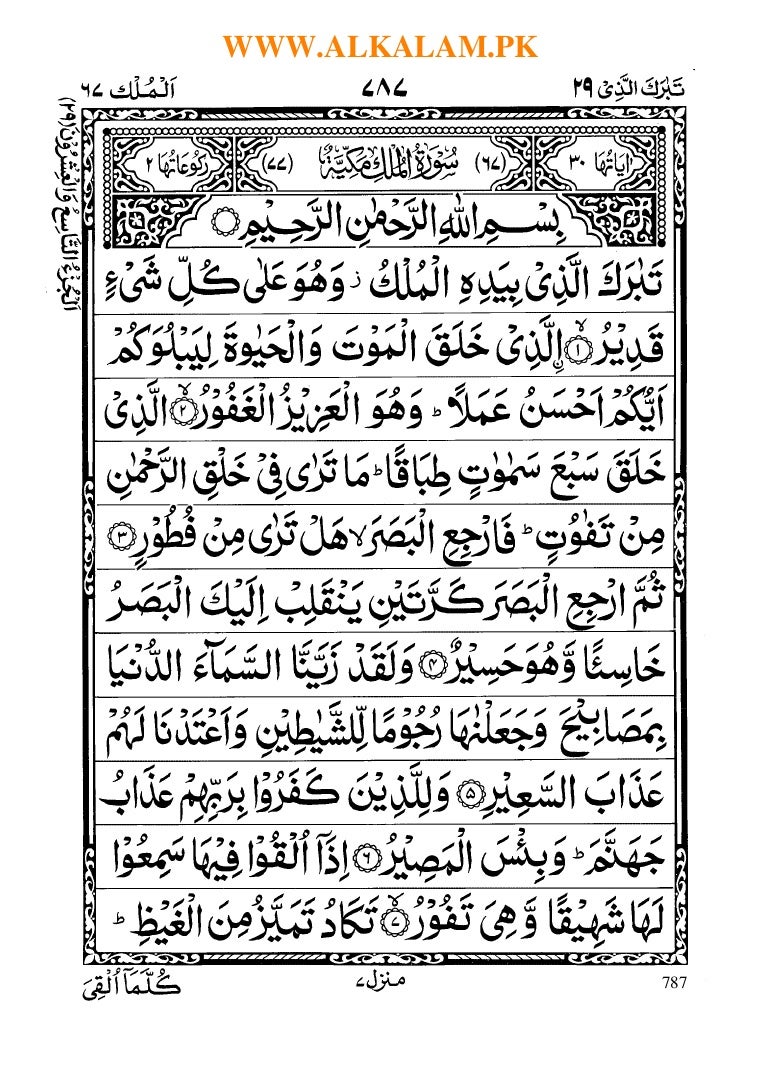 WWW.ALKALAM.PK
تَبٰرَكَ الَّذِیْ ۲۹
۷۸۷
اَلْمُلْك ۶۷
اَلْجُزْءُ التَّاسِعُ وَالْعِشْرُوْنَ (۲۹)
اٰیَاتُهَا ۳۰
(۶۷) سُوْرَةُ الْمُلْكِ مَكِّیَّةٌ (۷۷)
رُكُوْعَاتُهَا ۲
بِسْمِ اللّٰهِ الرَّحْمٰنِ الرَّحِیْمِ
تَبٰرَكَ الَّذِیْ بِیَدِهِ الْمُلْكُ ز وَهُوَ عَلٰی كُلِّ شَیْءٍ
قَدِیْرُ ۙ﴿۱﴾ ِ۟الَّذِیْ خَلَقَ الْمَوْتَ وَالْحَیٰوةَ لِیَبْلُوَكُمْ
اَیُّكُمْ اَحْسَنُ عَمَلًا ؕ وَهُوَ الْعَزِیْزُ الْغَفُوْرُ ۙ﴿۲﴾ الَّذِیْ
خَلَقَ سَبْعَ سَمٰوٰتٍ طِبَاقًا ؕ مَا تَرٰی فِیْ خَلْقِ الرَّحْمٰنِ
مِنْ تَفٰوُتٍ ؕ فَارْجِعِ الْبَصَرَ ۙ هَلْ تَرٰی مِنْ فُطُوْرٍ ﴿۳﴾
ثُمَّ ارْجِعِ الْبَصَرَ كَرَّتَیْنِ یَنْقَلِبْ اِلَیْكَ الْبَصَرُ
خَاسِئًا وَّهُوَ حَسِیْرٌ ﴿۴﴾ وَلَقَدْ زَیَّنَّا السَّمَآءَ الدُّنْیَا
بِمَصَابِیْحَ وَجَعَلْنٰهَا رُجُوْمًا لِّلشَّیٰطِیْنِ وَاَعْتَدْنَا لَهُمْ
عَذَابَ السَّعِیْرِ ﴿۵﴾ وَلِلَّذِیْنَ كَفَرُوْا بِرَبِّهِمْ عَذَابُ
جَهَنَّمَ ؕ وَبِئْسَ الْمَصِیْرُ ﴿۶﴾ اِذَاۤ اُلْقُوْا فِیْهَا سَمِعُوْا
لَهَا شَهِیْقًا وَّهِیَ تَفُوْرُ ۙ﴿۷﴾ تَكَادُ تَمَیَّزُ مِنَ الْغَیْظِ ؕ
787
منزل ۷
كُلَّمَاۤ اُلْقِیَ